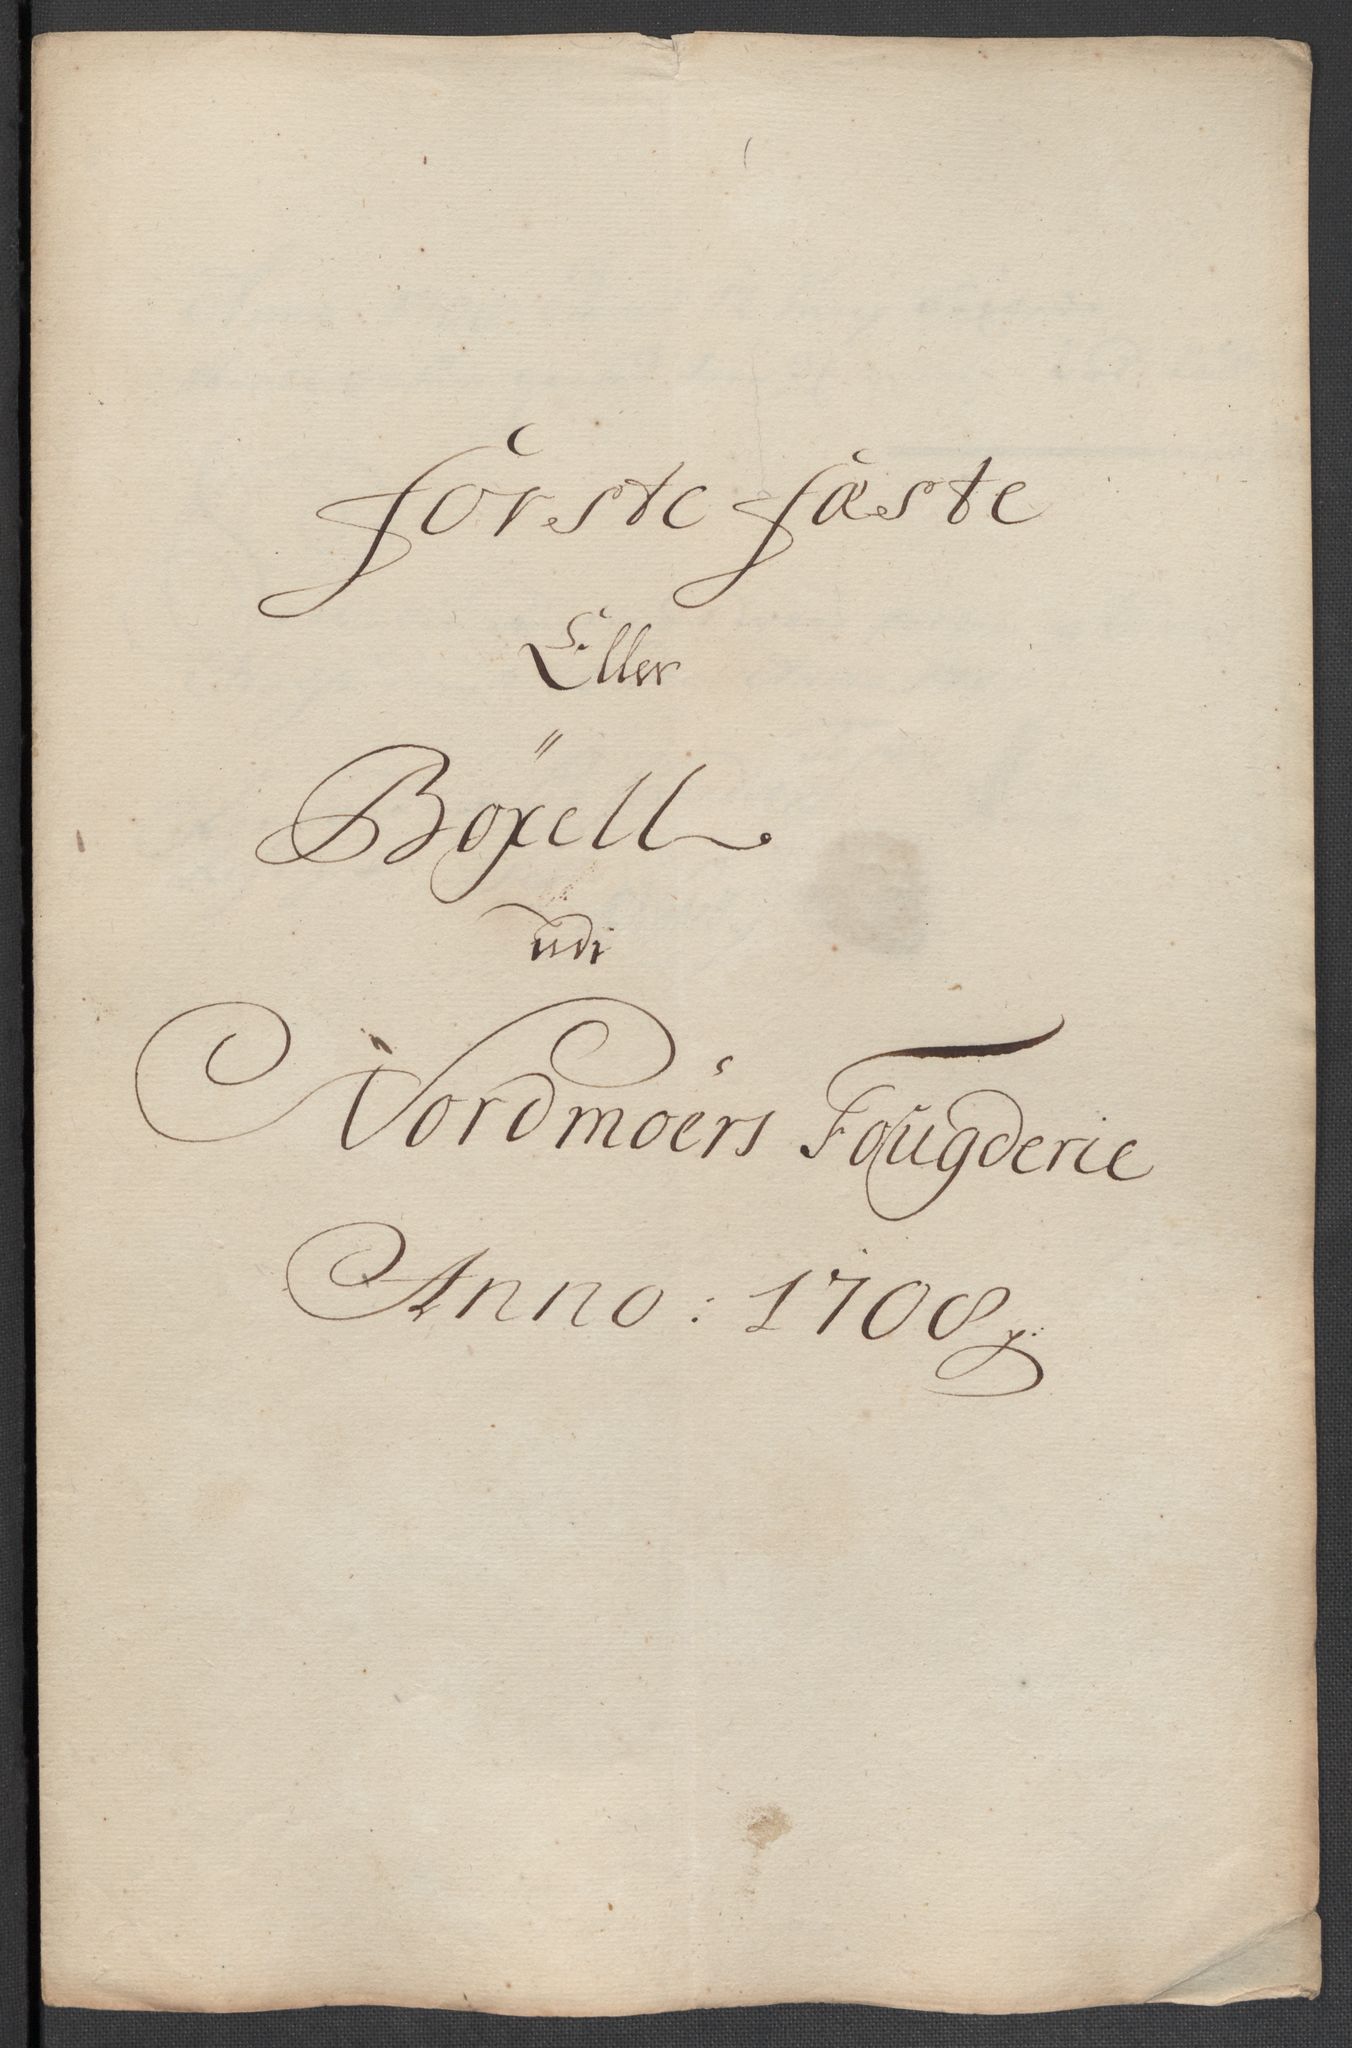 Förste fæste
Eller
Böxell
udi
Nordmoërs Fougderie
Anno : 1708